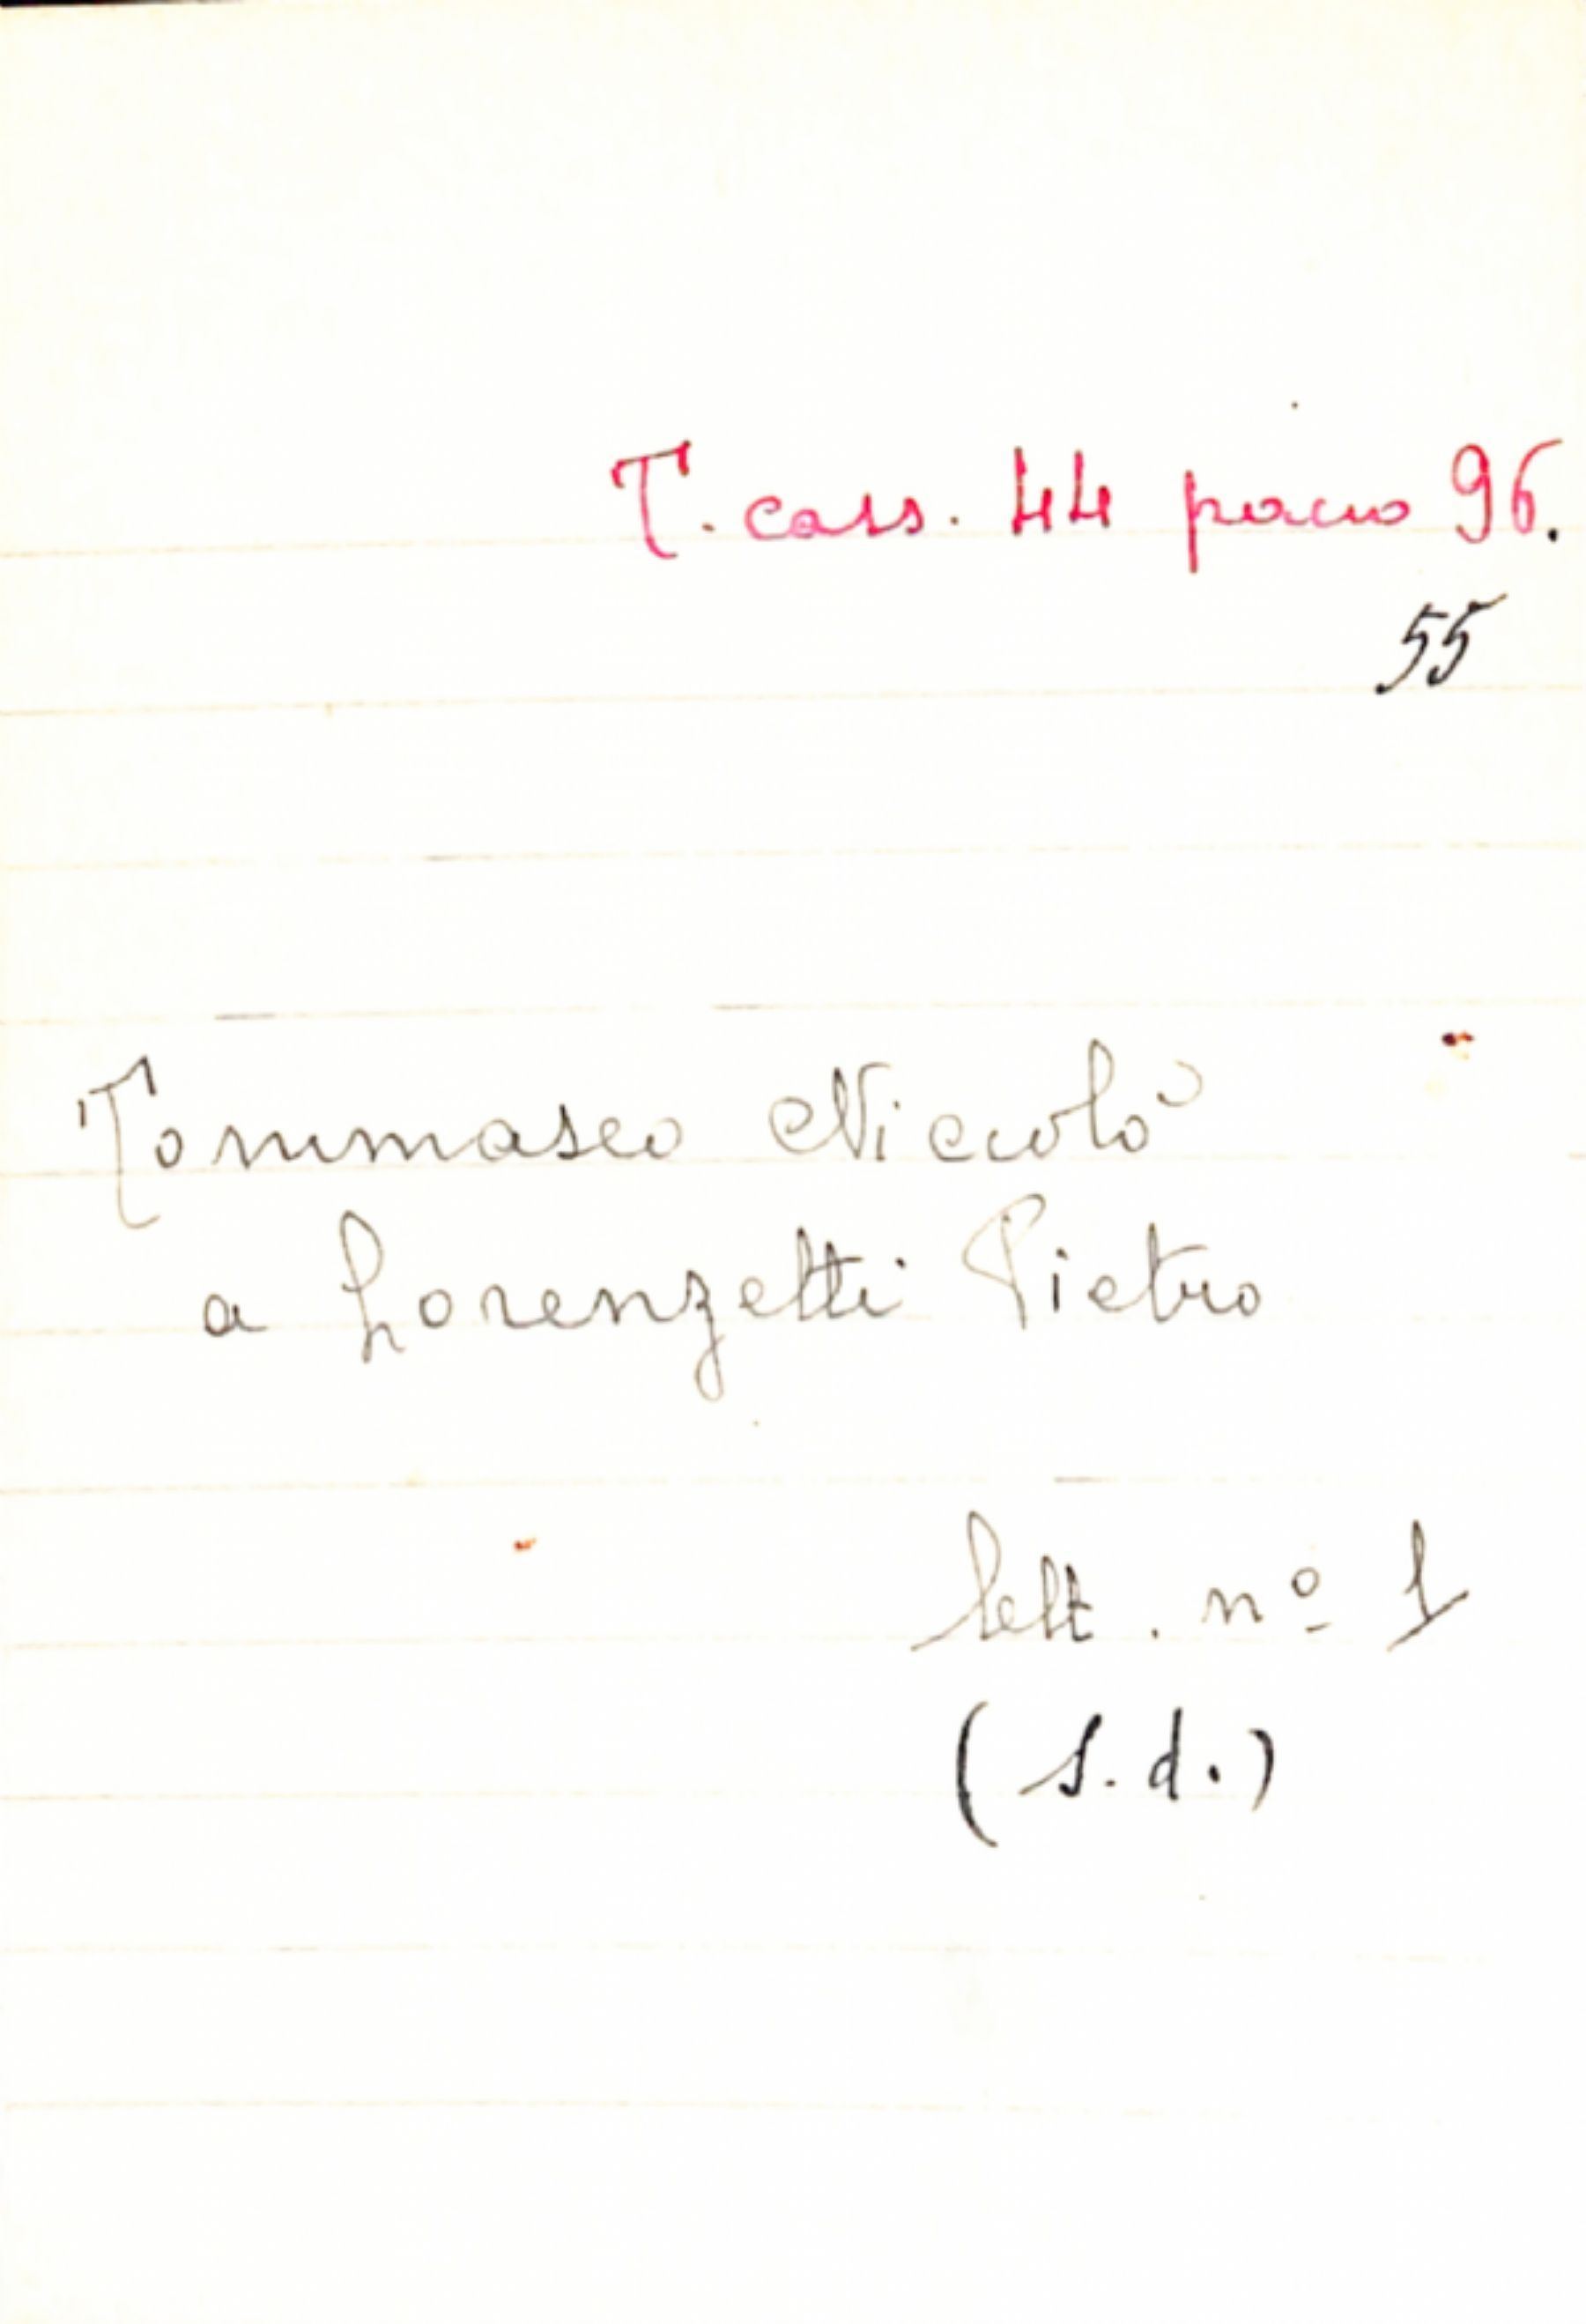 T. cass. 44 pacco 96.
55
Tommaseo Niccolò
a Lorenzetti Pietro
lett. nº 1
(s.d.)